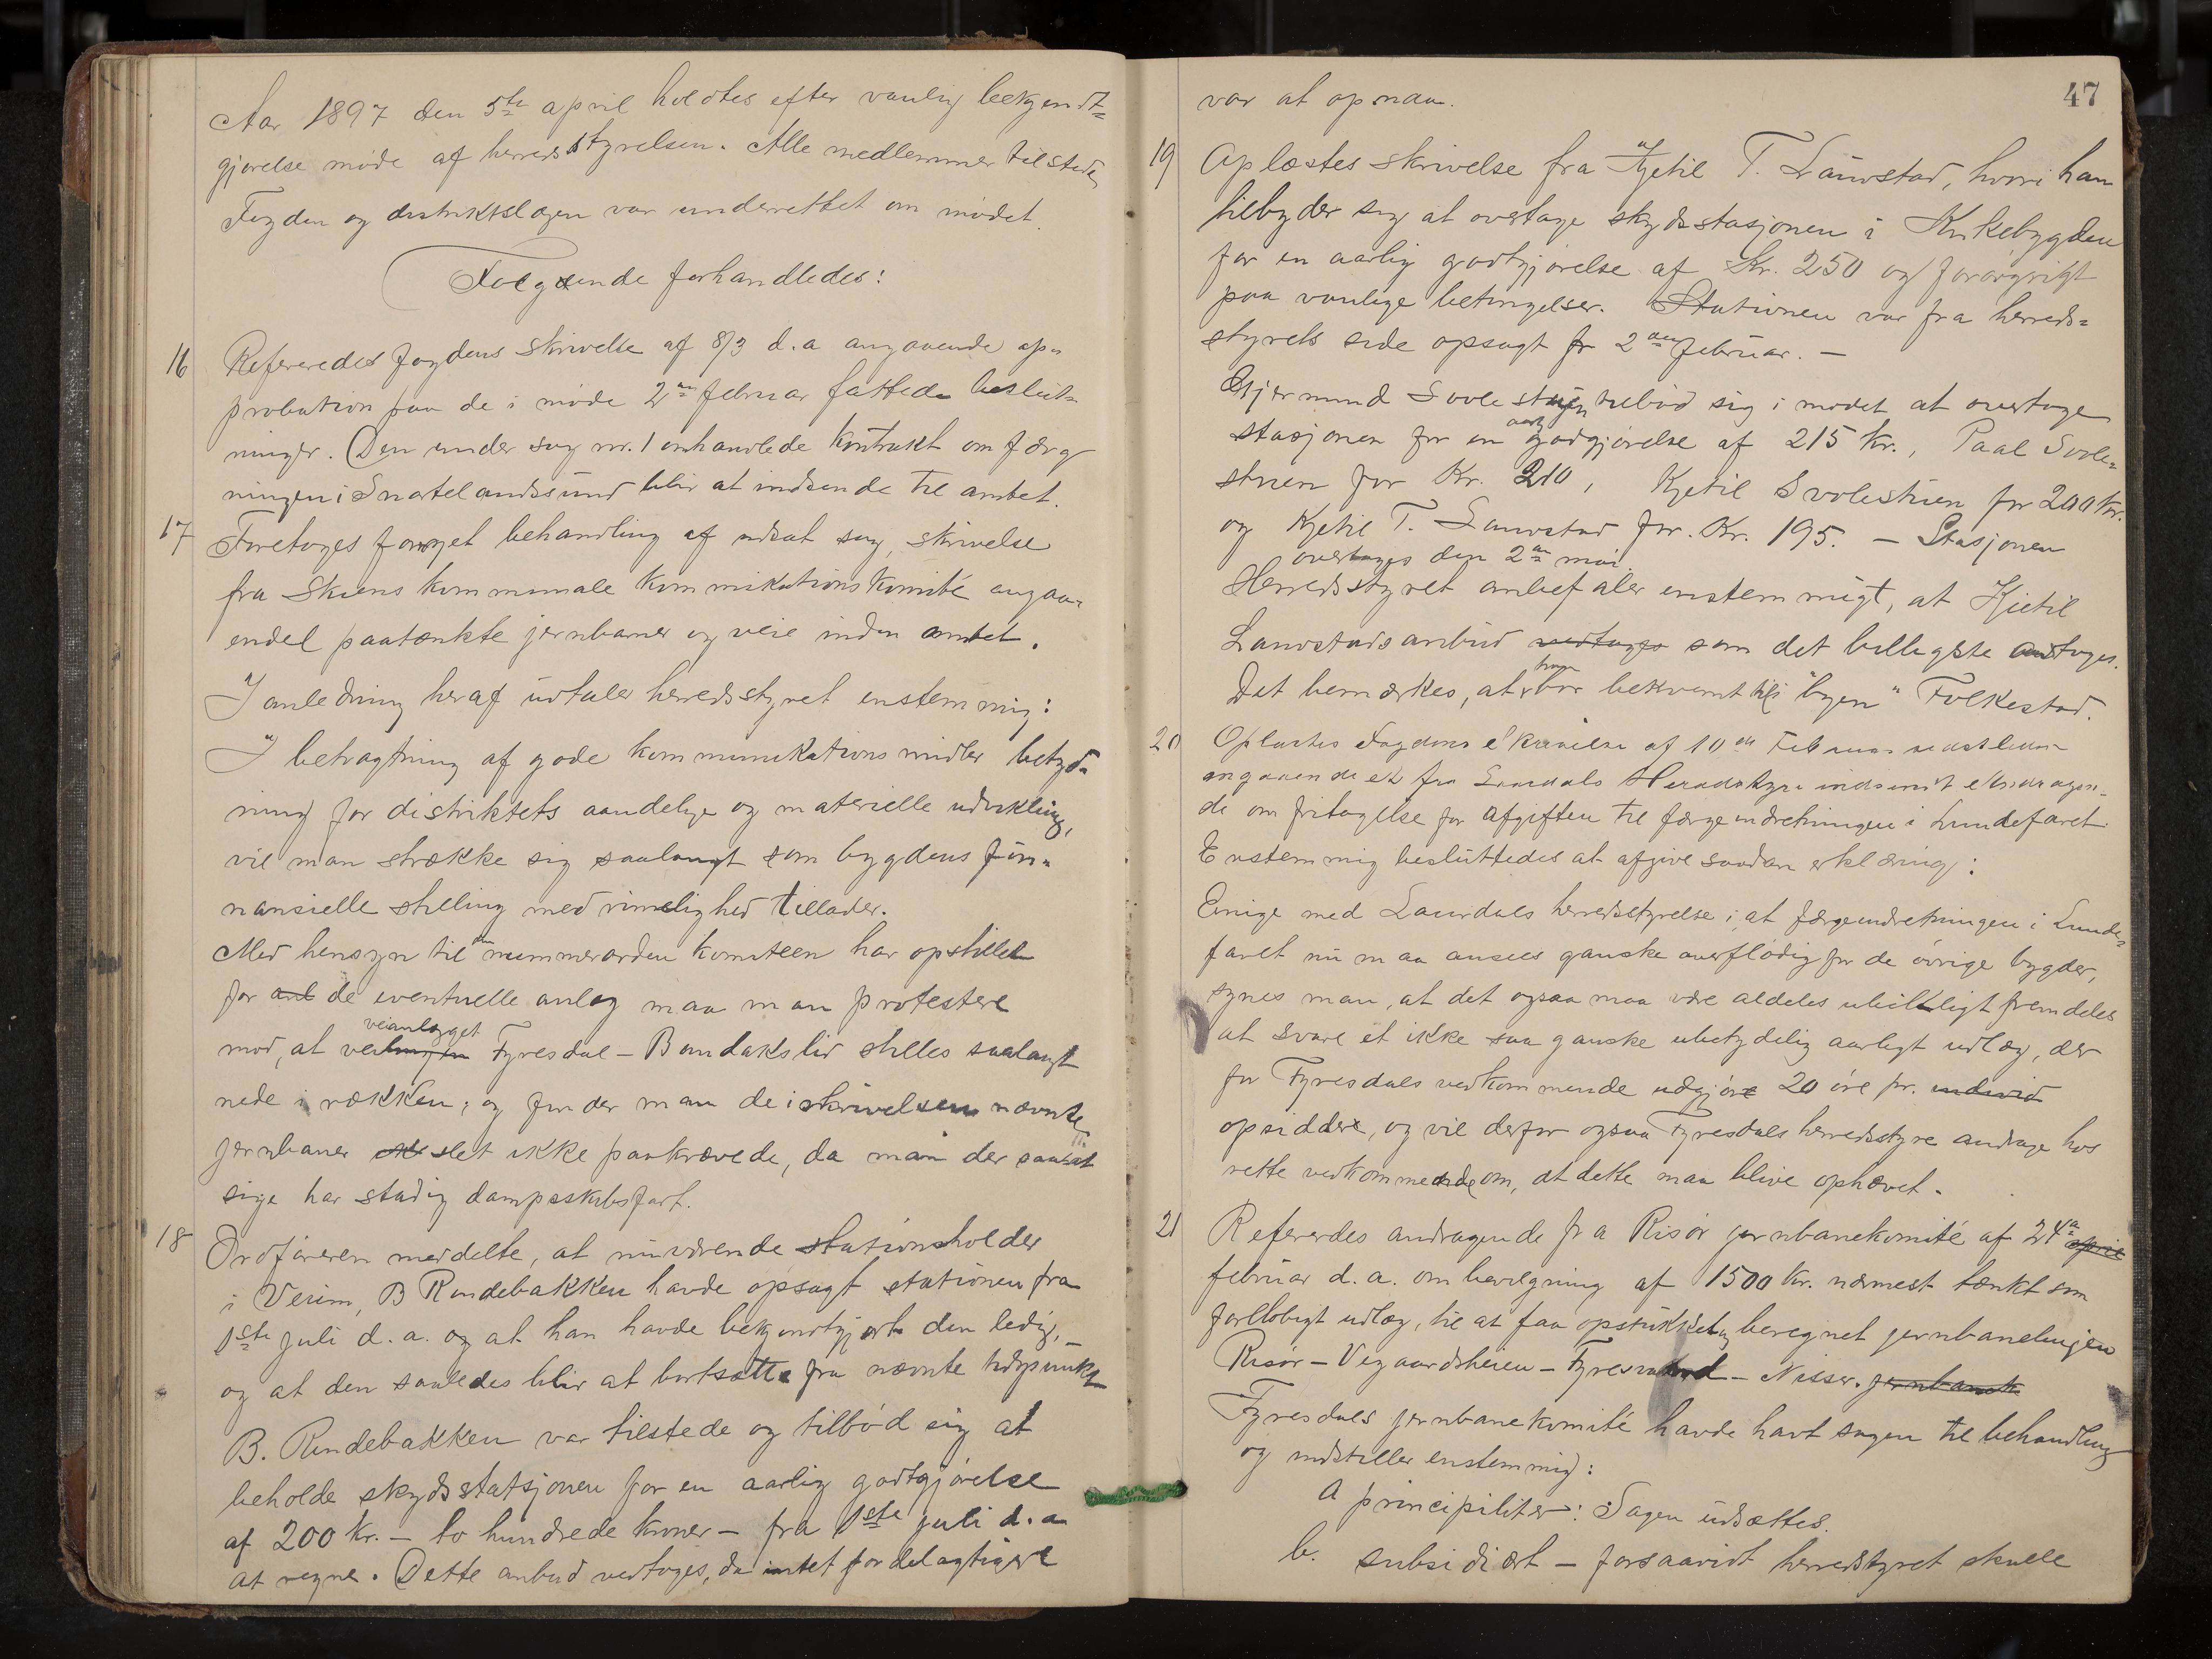 Aar 1897 den 5te april holdtes efter vanlig bekjendt=
gjørelse møde af herredsstyrelsen. Alle medlemmer tilstede,
Fogden og distriktslægen var underrettet om mødet.
Følgende forhandledes:
16 Referedes fogdens skrivelse af 8/3 d.a angaaende ap-
probation paa de i møde 2den februar fattede beslut-
ninger. Den under sag nr. 1 omhandlede kontrakt om færg
ningen i Snartelandssund blir at indsende til amtet.
17 Foretoges fornyet behandling af udsat sag, skrivelse
fra Skiens kommunale kommikationskomité angaa-
endel paatænkte jernbaner og veie inden amtet.
I anledning heraf udtaler herredsstyret enstemmig:
I betragtning af gode kommunikationsmidler betyd-
ning for distriktets aandelige og materielle udvikling,
vil man strække sig saalangt som bygdens fin-
nansielle stilling med rimelighed tillader.
Med hensyn til den nummerorden komiteen har opstillet
for anl de eventuelle anlæg maa man protestere
veianlægget
mod, at veilinjen Fyresdal – Bandakslid stilles saalangt
nede i rækken; og finder man de i skrivelsen nævnte
jernbaner slet ikke paakrævede, da man der saaat
sige har stadig dampskibsfart.
18 Ordføreren meddelte, at nuværende stationsholder
i Veum, B Rindebakken havde opsagt stationen fra
1ste juli d.a. og at han havde bekjendtgjort den ledig, –
og at den saaledes blir at bortsætte fra nævnte tidspunkt
B. Rindebakken var tilstede og tilbød sig at
beholde skydsstatsjonen for en aarlig godtgjørelse
af 200 kr. – to hundrede kroner – fra 1ste juli d.a
at regne. Dette anbud vedtoges, da intet fordelagtigere
47
var at opnaa.
19 Oplæstes skrivelse fra Kjetil T. Lauvstad, hvori han
tilbyder sig at overtage skydsstasjonen i Kirkebygden
for en aarlig godtgjørelse af Kr. 250 og forøvrigt
paa vanlige betingelser. Stationen var fra herreds=
styrets side opsagt fr 2den februar. –
Gjermund Svolestuen tilbød sig i mødet at overtage
aarlig
stasjonen for en godgjørelse af 215 kr., Paal Svole-
stuen for Kr. 210, Kjetil Svolestuen for 200 kr.
og Kjetil T. Lauvstad for Kr. 195. – Stasjonen
overtages den 2den mai.
Herredsstyret anbefaler enstemmigt, at Kjetil
Lauvstads anbud vedtages som det billigste antages.
han
Det bemærkes, at bor bekvemt til "byen" Folkestad.
20 Oplæstes Fogdens skrivelse af 10de Februar sidstleden
angaaende et fra Laurdals Herredstyre indsendt andragen-
de om fritagelse for afgiften til færgeindretningen i Lundefaret
Enstemmig besluttedes at afgive saadan erklæring:
Enige med Laurdals herredsstyrelse i, at færgeindretningen i Lunde-
faret nu maa ansees ganske overflødig for de øvrige bygder,
synes man, at det ogsaa maa være aldeles ubilligt fremdeles
at svare et ikke saa ganske ubetydelig aarligt udlæg, der
for Fyresdals vedkommende udgjøre 20 øre pr. individ
opsiddere, og vil derfor ogsaa Fyresdals herredsstyre andrage hos
rette vedkommende om, at dette maa blive ophævet.
21 Refererdes andragende fra Risør jernbanekomité af 24de april
februar d.a. om bevilgning af 1500 kr. nærmest tænkt som
forløbigt udlæg, til at faa opstikket og beregnet jernbanelinjen
Risør – Vegaardsheien – Fyresvand – Nisser. jernbane
Fyresdals jernbanekomité havde havt sagen til behandling
og indstiller enstemmig:
a principiliter: Sagen udsættes.
b. subsidiært – forsaavidt herredstyret skulle